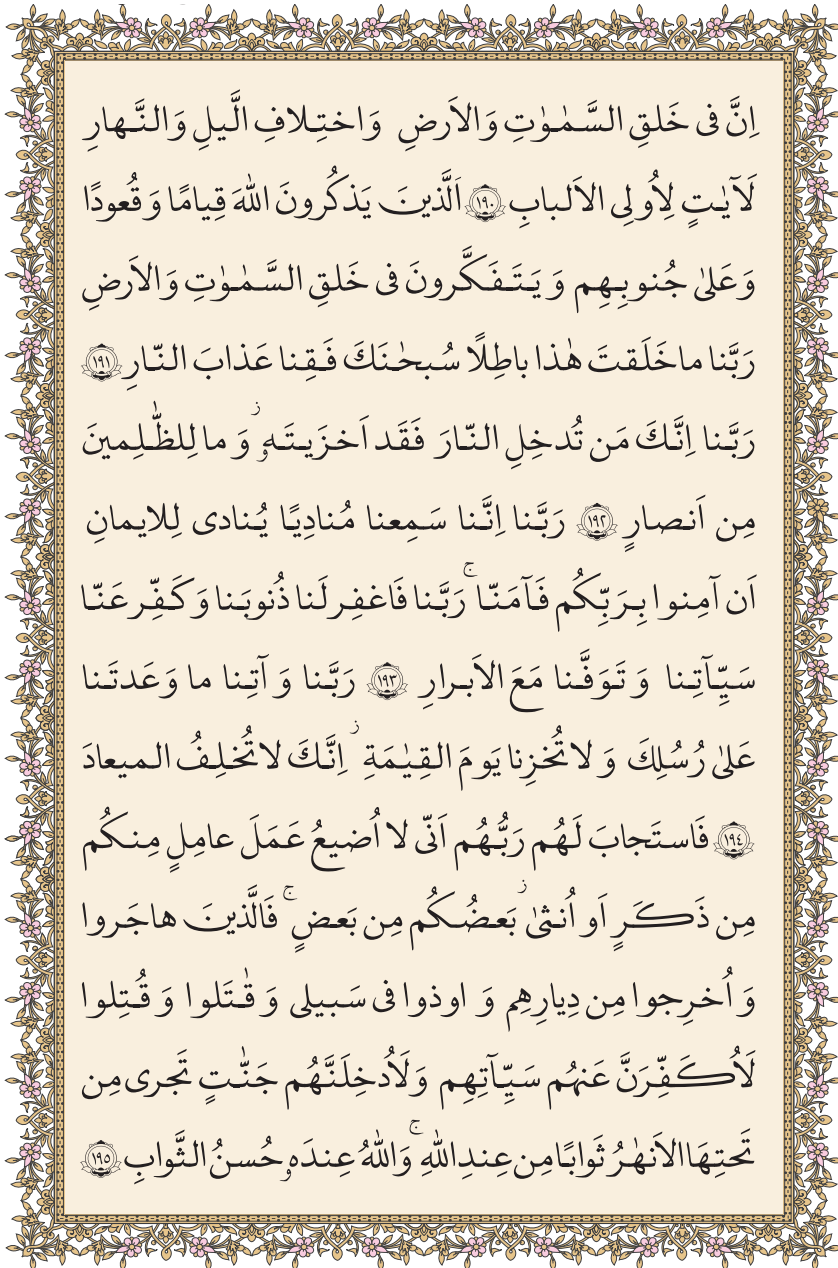 اِنَّ فى خَلقِ السَّمٰـوٰتِ وَالاَرضِ وَاختِـلافِ الَّيلِ وَالنَّـهارِ
لَآيٰـتٍ لِاُولِى الاَلـبابِ ﴿١٩٠﴾ اَلَّذينَ يَذكُرونَ اللّٰهَ قِيامًا وَ قُعودًا
وَ عَلىٰ جُنوبِـهِم وَ يَـتَـفَـكَّرونَ فى خَلقِ السَّـمٰـوٰتِ وَالاَرضِ
رَبَّنا ما خَلَقتَ هٰذا باطِلًا سُبحٰـنَكَ فَـقِـنا عَذابَ النّـارِ ﴿١٩١﴾
رَبَّـنا اِنَّـكَ مَن تُدخِلِ النّـارَ فَقَد اَخزَيـتَـهۥۖ ز وَ ما لِلظّٰـلِمينَ
مِن اَنـصارٍ ﴿١٩٢﴾ رَبَّـنا اِنَّـنا سَـمِعنا مُنادِيًا يُـنادى لِلايمانِ
اَن آمِنوا بِـرَبِّكُم فَـآمَنّـا ۚ رَبَّـنا فَاغفِر لَنا ذُنوبَـنا وَ كَـفِّـر عَنّـا
سَـيِّـآتِـنا وَ تَـوَفَّـنا مَعَ الاَبـرارِ ﴿١٩٣﴾ رَبَّـنا وَ آتِـنا ما وَعَدتَـنا
عَلىٰ رُسُلِكَ وَ لا تُخزِنا يَومَ الـقِـيٰـمَةِ ز اِنَّـكَ لا تُخلِـفُ الـميعادَ
﴿١٩٤﴾ فَاسـتَجابَ لَـهُم رَبُّـهُم اَنّى لا اُضيعُ عَـمَلَ عامِلٍ مِنـكُم
مِن ذَكَـرٍ اَو اُنـثىٰ ز بَعـضُـكُم مِن بَعضٍ ۚ فَالَّذينَ هاجَروا
وَ اُخرِجوا مِن دِيارِهِم وَ اوذوا فى سَـبيلى وَ قٰـتَلوا وَ قُـتِلوا
لَاُكَـفِّـرَنَّ عَنهُم سَيِّـآتِهِم وَلَاُدخِلَنَّهُم جَنّٰـتٍ تَجرى مِن
تَحتِهَا الاَنهٰرُ ثَوابًا مِن عِندِ اللّٰهِ ۚ وَاللّٰهُ عِندَهۥ حُسنُ الـثَّوابِ ﴿١٩٥﴾